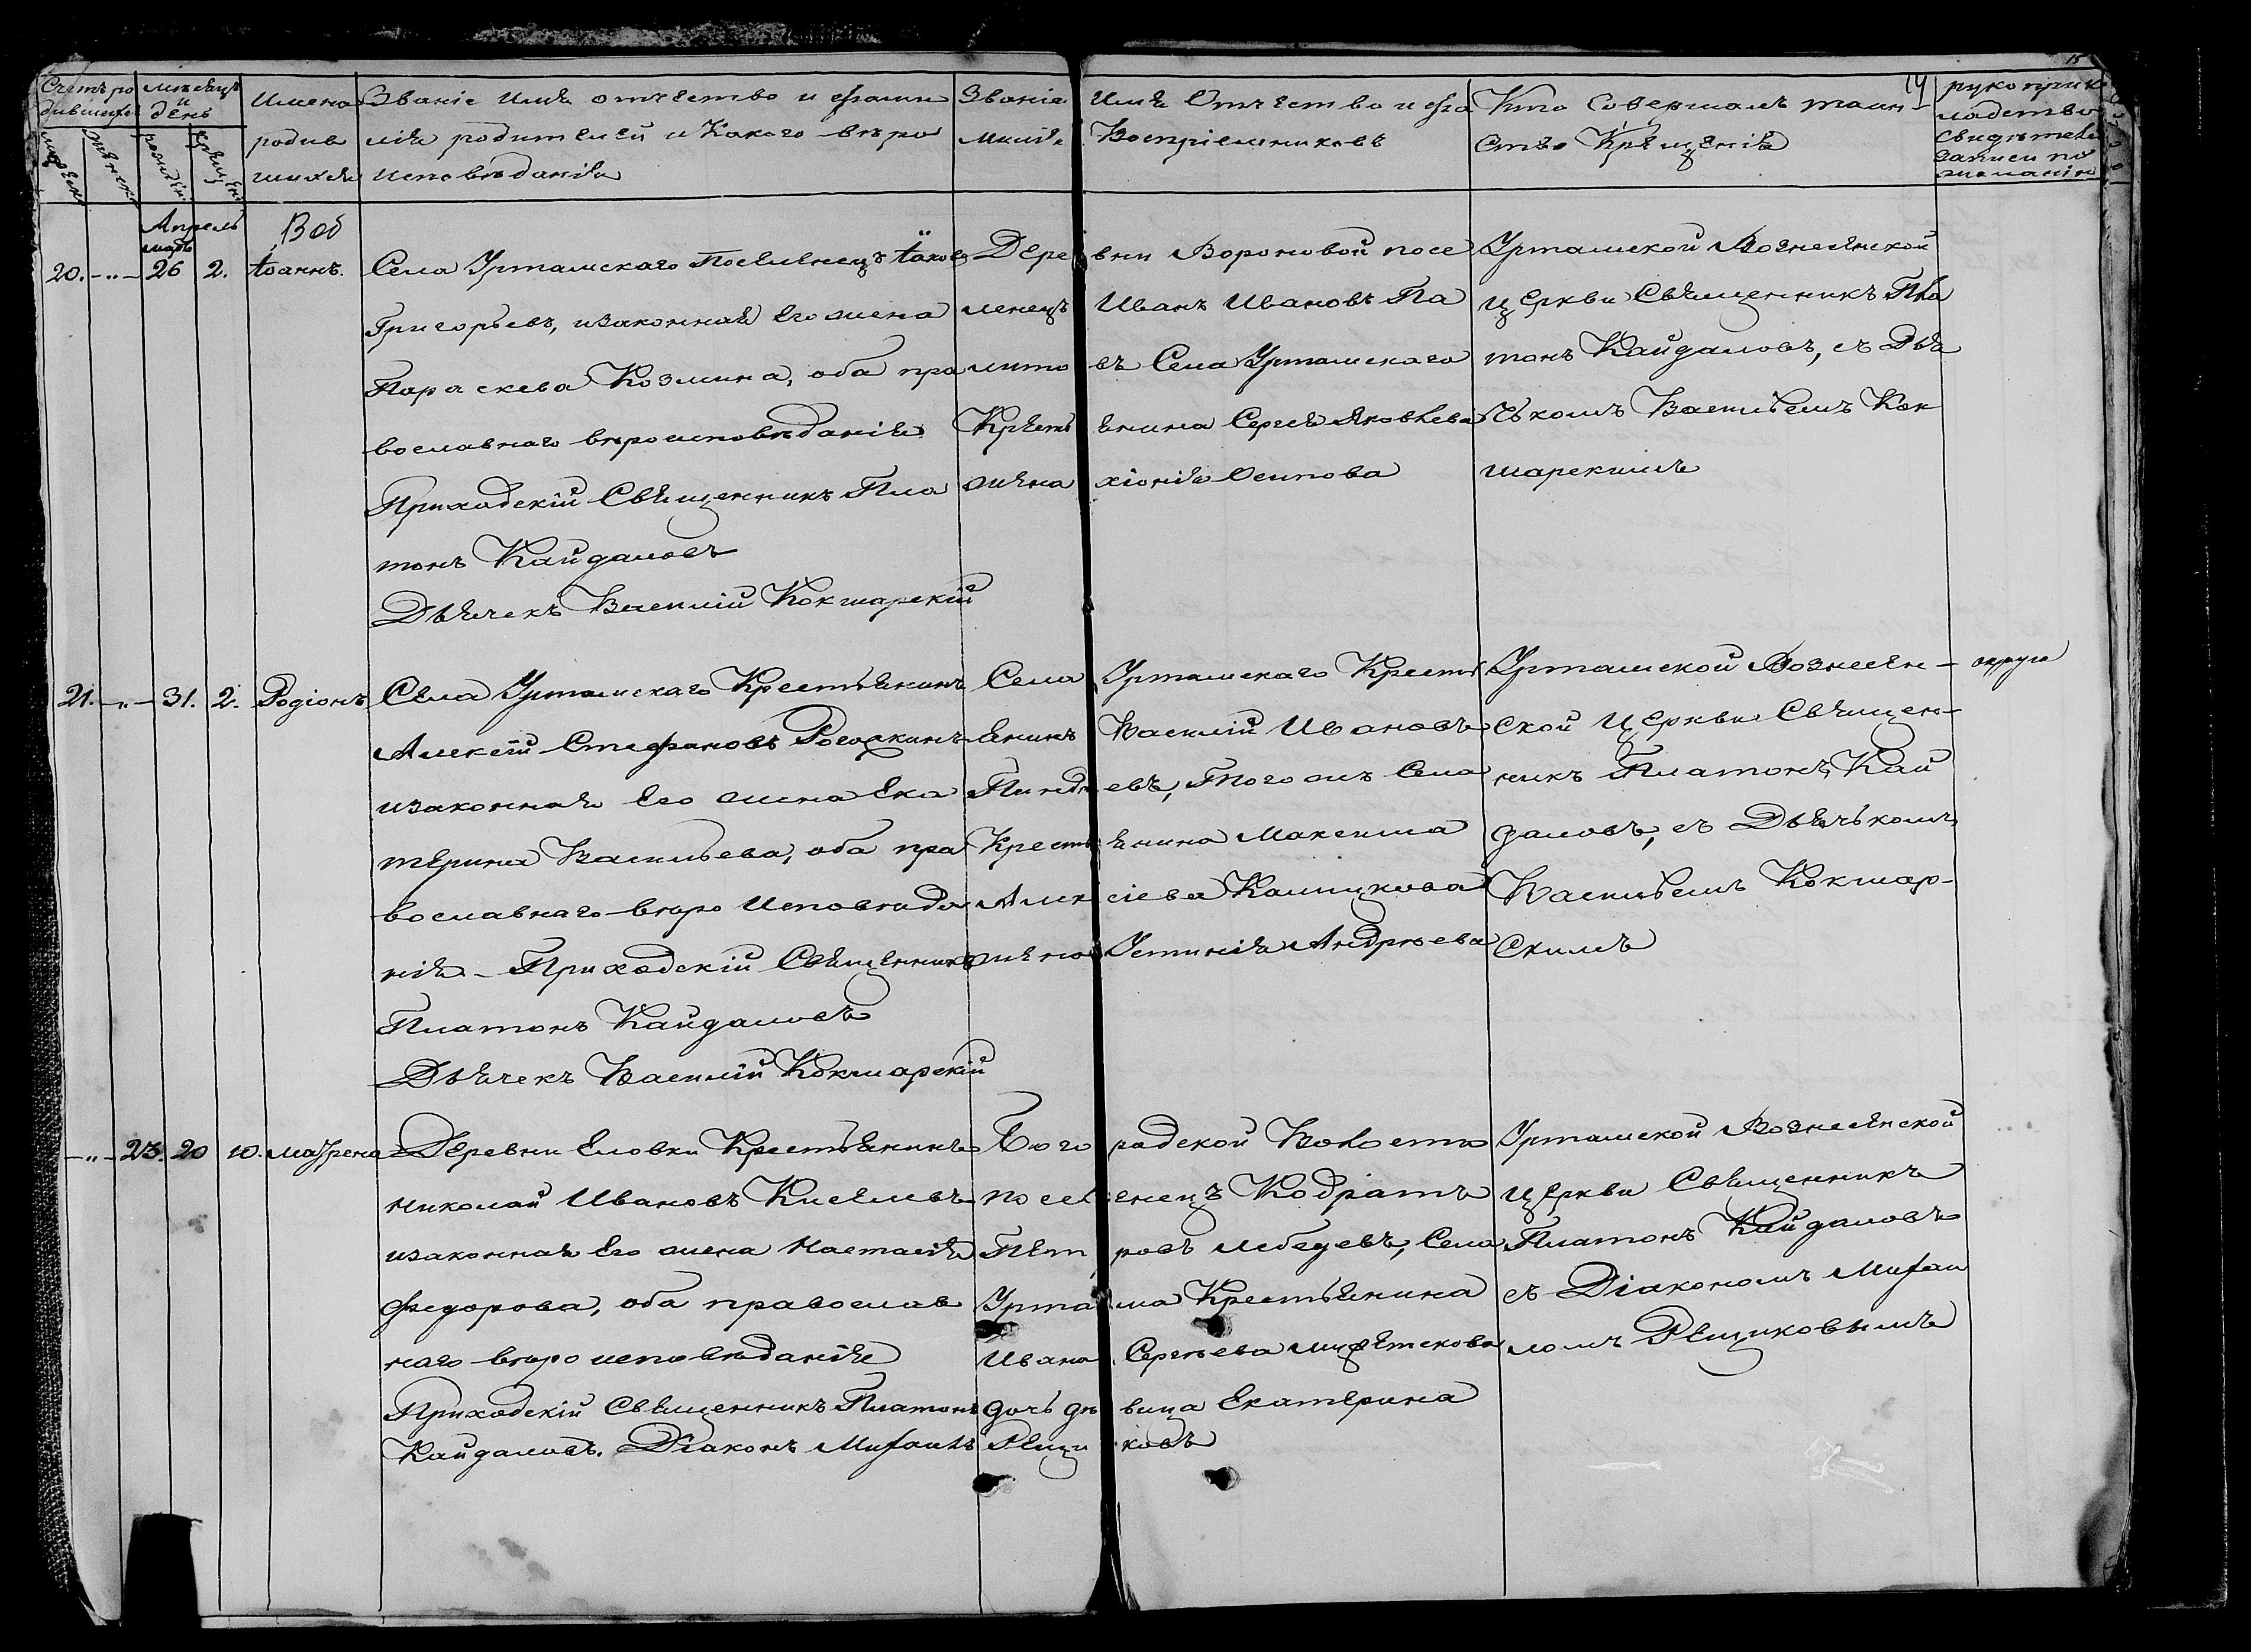 15
14
Счетъ ро мѣсяцъ
дившихся и день
мужеск женск рожден. крещен.
Имена
родив
шихся
Званіе Имя отчество и фами
лія родителей и какого вѣро
исповѣданія
Званіе Имя Отчество и фа
милія Воспріемниковъ
Кто Совершалъ таин
ство Крещенія
рукоприк
ладство
свидѣтелей
записи по
желанію
Апрель
мар. Воб
20. - „ - 26 2. Іоаннъ.
Села Уртамскаго Поселенецъ Іаковъ
Григорьевъ, изаконная Его жена
Параскева Козмина, оба пра
вославнаго вѣроисповѣданія
Приходскій Священникъ Пла
тонъ Кайдаловъ
Дьячекъ Василій Кокшарскій
Деревни Вороновой посе
ленецъ Иванъ Ивановъ Па
въ Села Уртамскаго
Крестьянина Сергея Яковлева
жена хіонія Осипова
Уртамской Вознесенской
церкви Священникъ Пла
тонъ Кайдаловъ, съ Дья
чькомъ Васильемъ Кок
шарскимъ
21. - „ - 31. 2. Родіонъ
Села Уртамскаго Крестьянинъ
Алексій Стефановъ
изаконная Его жена Ека
терина Васильева, оба пра
вославнаго вѣро Исповѣда
нія - Приходскій Священникъ
Платонъ Кайдаловъ
Дьячекъ Василій Кокшарскій
Села Уртамскаго Кресть
янинъ Василій Ивановъ
евъ, Того жъ Села
Крестьянина Максима
Алексіева Калицкова
жена Устинія Андрѣева
Уртамской Вознесен-
ской Церкви Священ-
никъ Платонъ Кай
даловъ, съ Дьячькомъ
Васильемъ Кокшар-
скимъ
- „ - 23. 20 10. Маѳрена
Деревни Еловки Крестьянинъ
Николай Ивановъ Киселевъ
изаконная Его жена Настасія
Федорова, оба православ
наго вѣро исповѣданія
Приходскій Священникъ Платонъ
Кайдаловъ. Діаконъ Михаилъ Рещиковъ
Богорадской Волости
поселенецъ Кодратъ
Петровъ Лебедевъ, Села
Уртама Крестьянина
Ивана Сергѣева
дочь дѣвица Екатерина
Уртамской Вознесенской
церкви Священникъ
Платонъ Кайдаловъ
съ Діакономъ Михаи
ломъ Рещиковымъ